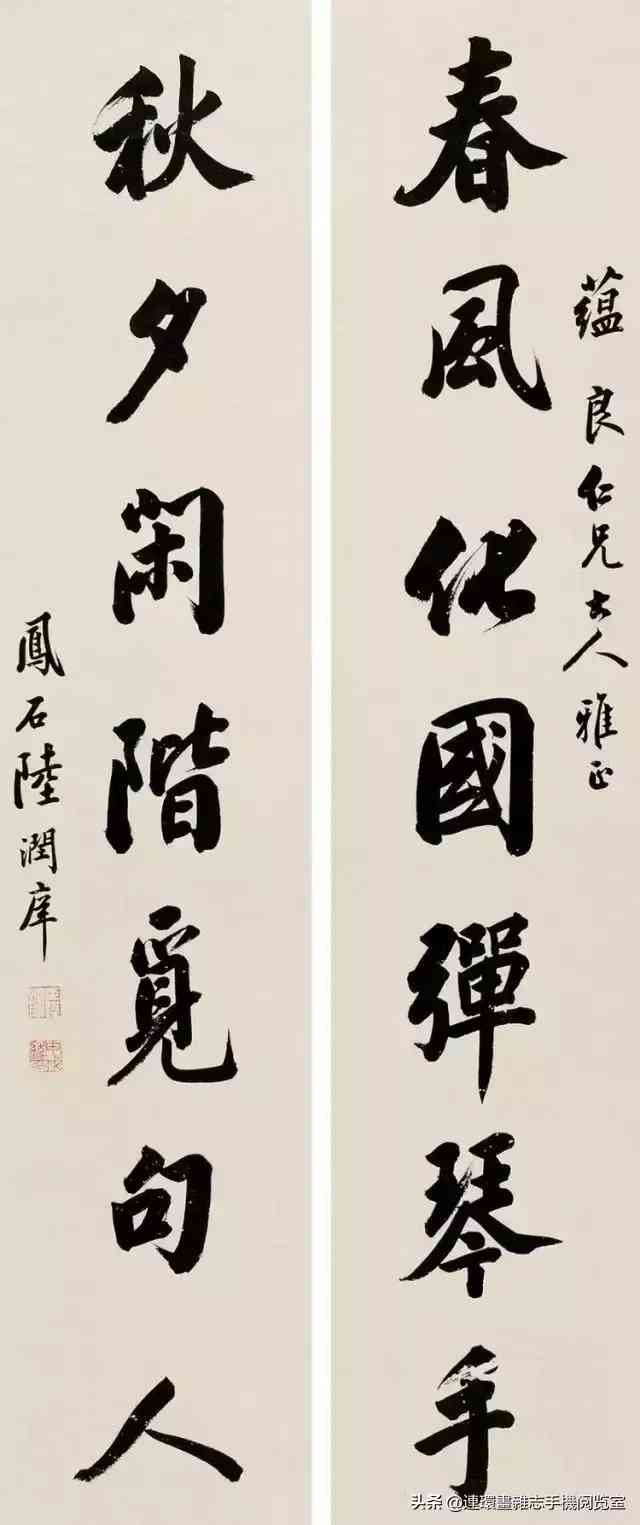 春風化國彈琴手
蘊良仁兄大人雅正
秋夕閑階覓句人
鳳石陸潤庠
头条 @連環畫雜志手機阅览室